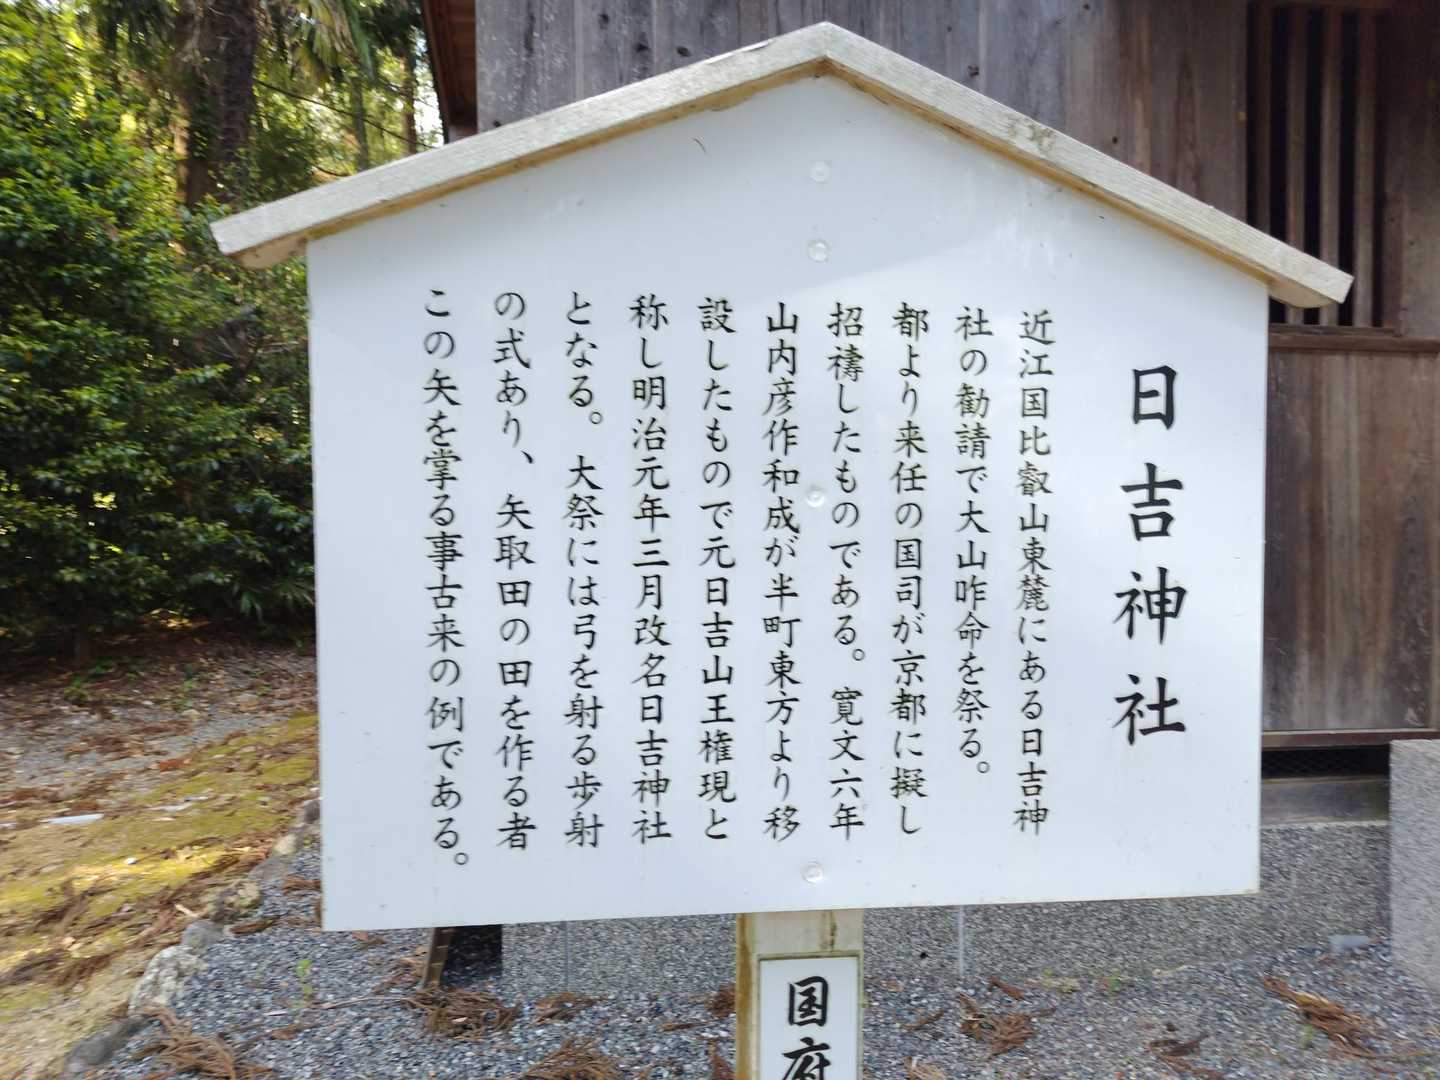 日吉神社
近江国比叡山東麓にある日吉神
社の勧請で大山咋命を祭る。
都より来任の国司が京都に擬し
招禱したものである。寛文六年
山内彦作和成が半町東方より移
設したもので元日吉山王権現と
称し明治元年三月改名日吉神社
となる。大祭には弓を射る歩射
の式あり、矢取田の田を作る者
この矢を掌る事古来の例である。
国府